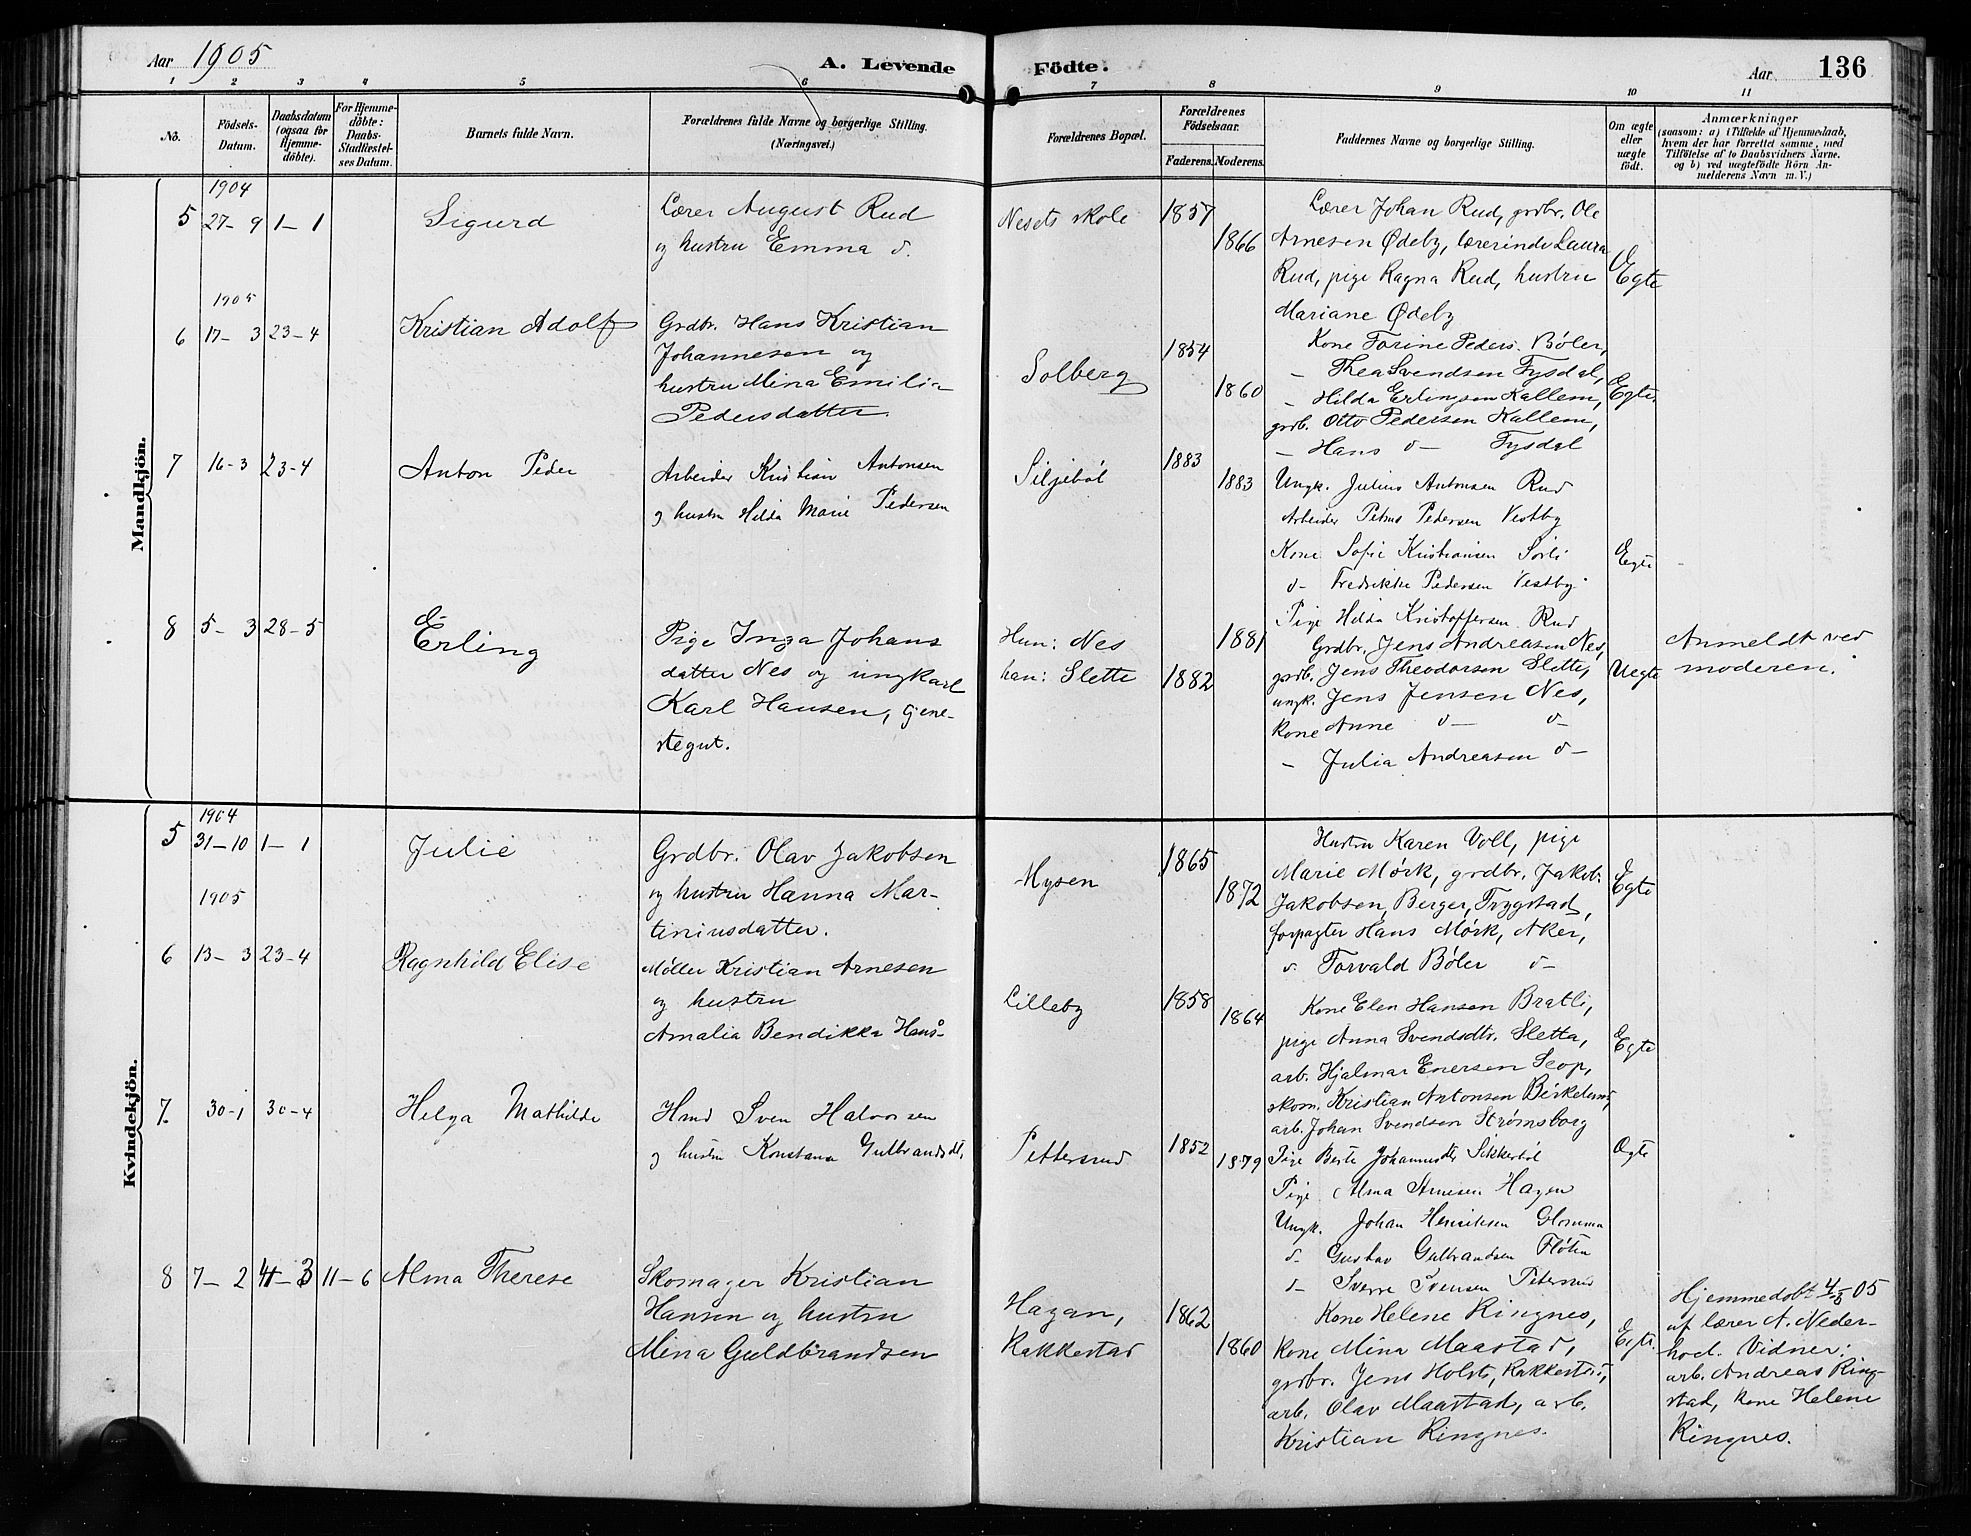 Aar 1905
A. Levende Födte.
Aar
136
1 2 3 4 5 6 7 8 9 10 11
No.
Födsels-
Datum.
Daabsdatum
(ogsaa for
Hjemme-
döbte).
For Hjemme-
döbte:
Daabs-
Stadfæstel-
ses Datum.
Barnets fulde Navn.
Forældrenes fulde Navne og borgerlige Stilling.
(Næringsvei.)
Forældrenes Bopæl.
Forældrenes
Födselsaar.
Faderens. Moderens.
Faddernes Navne og borgerlige Stilling.
Om ægte
eller
uægte
födt.
Anmærkninger
(saasom: a) i Tilfælde af Hjemmedaab,
hvem der har forrettet samme, med
Tilföielse af to Daabsvidners Navne.
og b) ved uægtefödte Börn An-
melderens Navn m. V.)
Mandkjön.
1904
5 27-9 1-1
Sigurd
Lærer August Rud
og hustru Emma d.
Nesets skole
1857
1866
Lærer Johan Rud, grdbr. Ole
Arnesen Ødeby, lærerinde Laura
Rud, pige Ragna Rud, hustru
Mariane Ødeby
Egte
1905
6 17-3 23-4
Kristian Adolf
Grdbr. Hans Kristian
Johannesen og
hustru Mina Emilie
Pedersdatter.
Solberg
1854
1860
Kone Torine Peders. Bøler,
- Thea Svendsen Fysdal,
- Hilda Erlingsen Kallem,
grdb. Otto Pedersen Kallem,
- Hans d- Fysdal
Egte.
7 16-3 23-4
Anton Peder
Arbeider Kristian Antonsen
og hustru Hilda Marie Pedersen
Siljebøl
1883
1883
Ungk. Julius Antonsen Rud
Arbeider Petrus Pedersen Vestby
Kone Sofie Kristiansen Sørli
d- Fredrikke Pedersen Vestby
Pige Hilda Kristoffersen Rud
Egte
8 5-3 28-5
Erling
Pige Inga Johans
datter Nes og ungkarl
Karl Hansen, tjene-
stegut.
Hun: Nes
han: Slette
1881
1882
Grdbr. Jens Andreasen Nes,
grdb. Jens Theodorsen Slette,
ungk. Jens Jensen Nes,
kone Anne d- d-
- Julia Andreasen d-
Uegte
Anmeldt ved
moderen.
Kvindekjön.
1904
5 31-10 1-1
Julie
Grdbr. Olav Jakobsen
og hustru Hanna Mar-
tiniusdatter.
Mysen
1865
1872
Hustru Karen Voll, pige
Marie Mørk, grdbr. Jakob
Jakobsen Berger, Trygstad,
forpagter Hans Mørk, Aker,
d. Torvald Bøler d-
Egte
1905
6 13-3 23-4
Ragnhild Elise
Møller Kristian Arnesen
og hustru
Amalia Bendikka Hans-
Lilleby
1858
1864
Kone Elen Hansen Bratli,
pige Anna Svendsdtr. Sletta,
arb. Hjalmar Enersen Scop,
skom. Kristian Antonsen
arb. Johan Svendsen Strømsborg
Egte
7. 30-1 30-4
Helga Mathilde
Hmd Sven Halvorsen
og hustru Konstanse Gulbrandsdt.
Pettersrud
1852
1879
Pige Berte Johannesdtr Sikkerbøl
Pige Alma Arnesen Hagen
Ungk. Johan Henriksen Glomma
d- Gustav Gulbrandsen Fløten
d- Sverre Svensen Petersrud
Ægte
8 7-2 4-3 11-6
Alma Therese
Skomager Kristian
Hansen og hustru
Mina Guldbrandsen
Hagan,
Rakkestad
1862
1860
Kone Helene Ringnes,
Kone Mina Maastad,
grdbr. Jens Holst, Rakkestad,
arb. Olav Maastad, arb.
Kristian Ringnes.
Egte.
Hjemmedøbt 4/3 05
af lærer A. Neder-
hoel. Vidner:
arb. Andreas Ring-
stad, kone Helene
Ringnes.